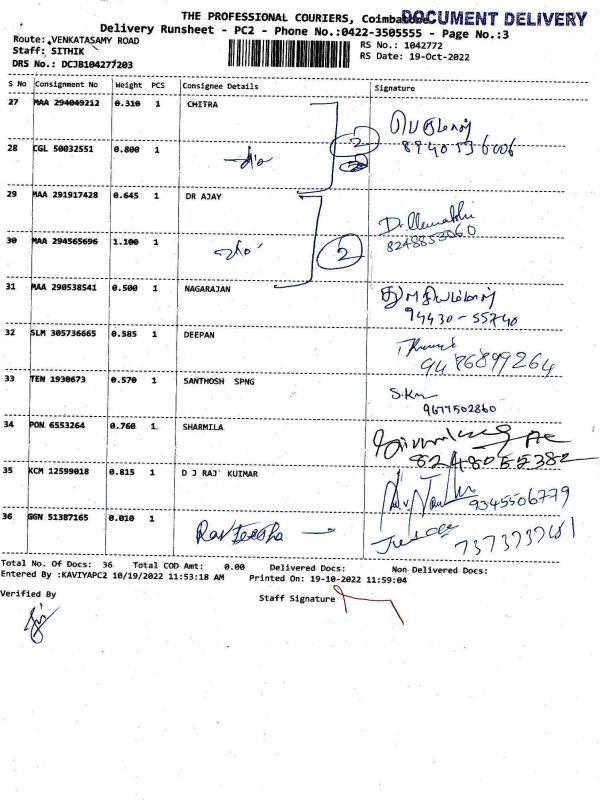 THE PROFESSIONAL COURIERS, Coimbatore DOCUMENT DELIVERY
Delivery Runsheet - PC2 - Phone No.:0422-3505555 - Page No.:3
Route: VENKATASAMY ROAD
RS No.: 1042772
Staff: SITHIK
RS Date: 19-Oct-2022
DRS No.: DCJB10427/203
S No Consignment No Weight PCS Consignee Details Signature
27 MAA 294049212 0.310 1 CHITRA
2
28 CGL 50032551 0.800 1
29 MAA 291917428 0.645 1 DR AJAY
30 MAA 294565696 1.100 1 2
31 MAA 290538541 0.500 1 NAGARAJAN
94430-55740
32 SLM 305736665 0.585 1 DEEPAN
9486899264
33 TEN 1930673 0.570 1 SANTHOSH SPNG
9677502860
34 PON 6553264 0.760 1 SHARMILA
8248055382
35 KCM 12599018 0.815 1 D J RAJ KUIMAR
9345506779
36 GGN 51387165 0.010 1
7373737481
Total No. Of Docs: 36 Total COD Amt: 0.00 Delivered Docs: Non Delivered Docs:
Entered By :KAVIYAPC2 10/19/2022 11:53:18 AM Printed On: 19-10-2022 11:59:04
Verified By
Staff Signature